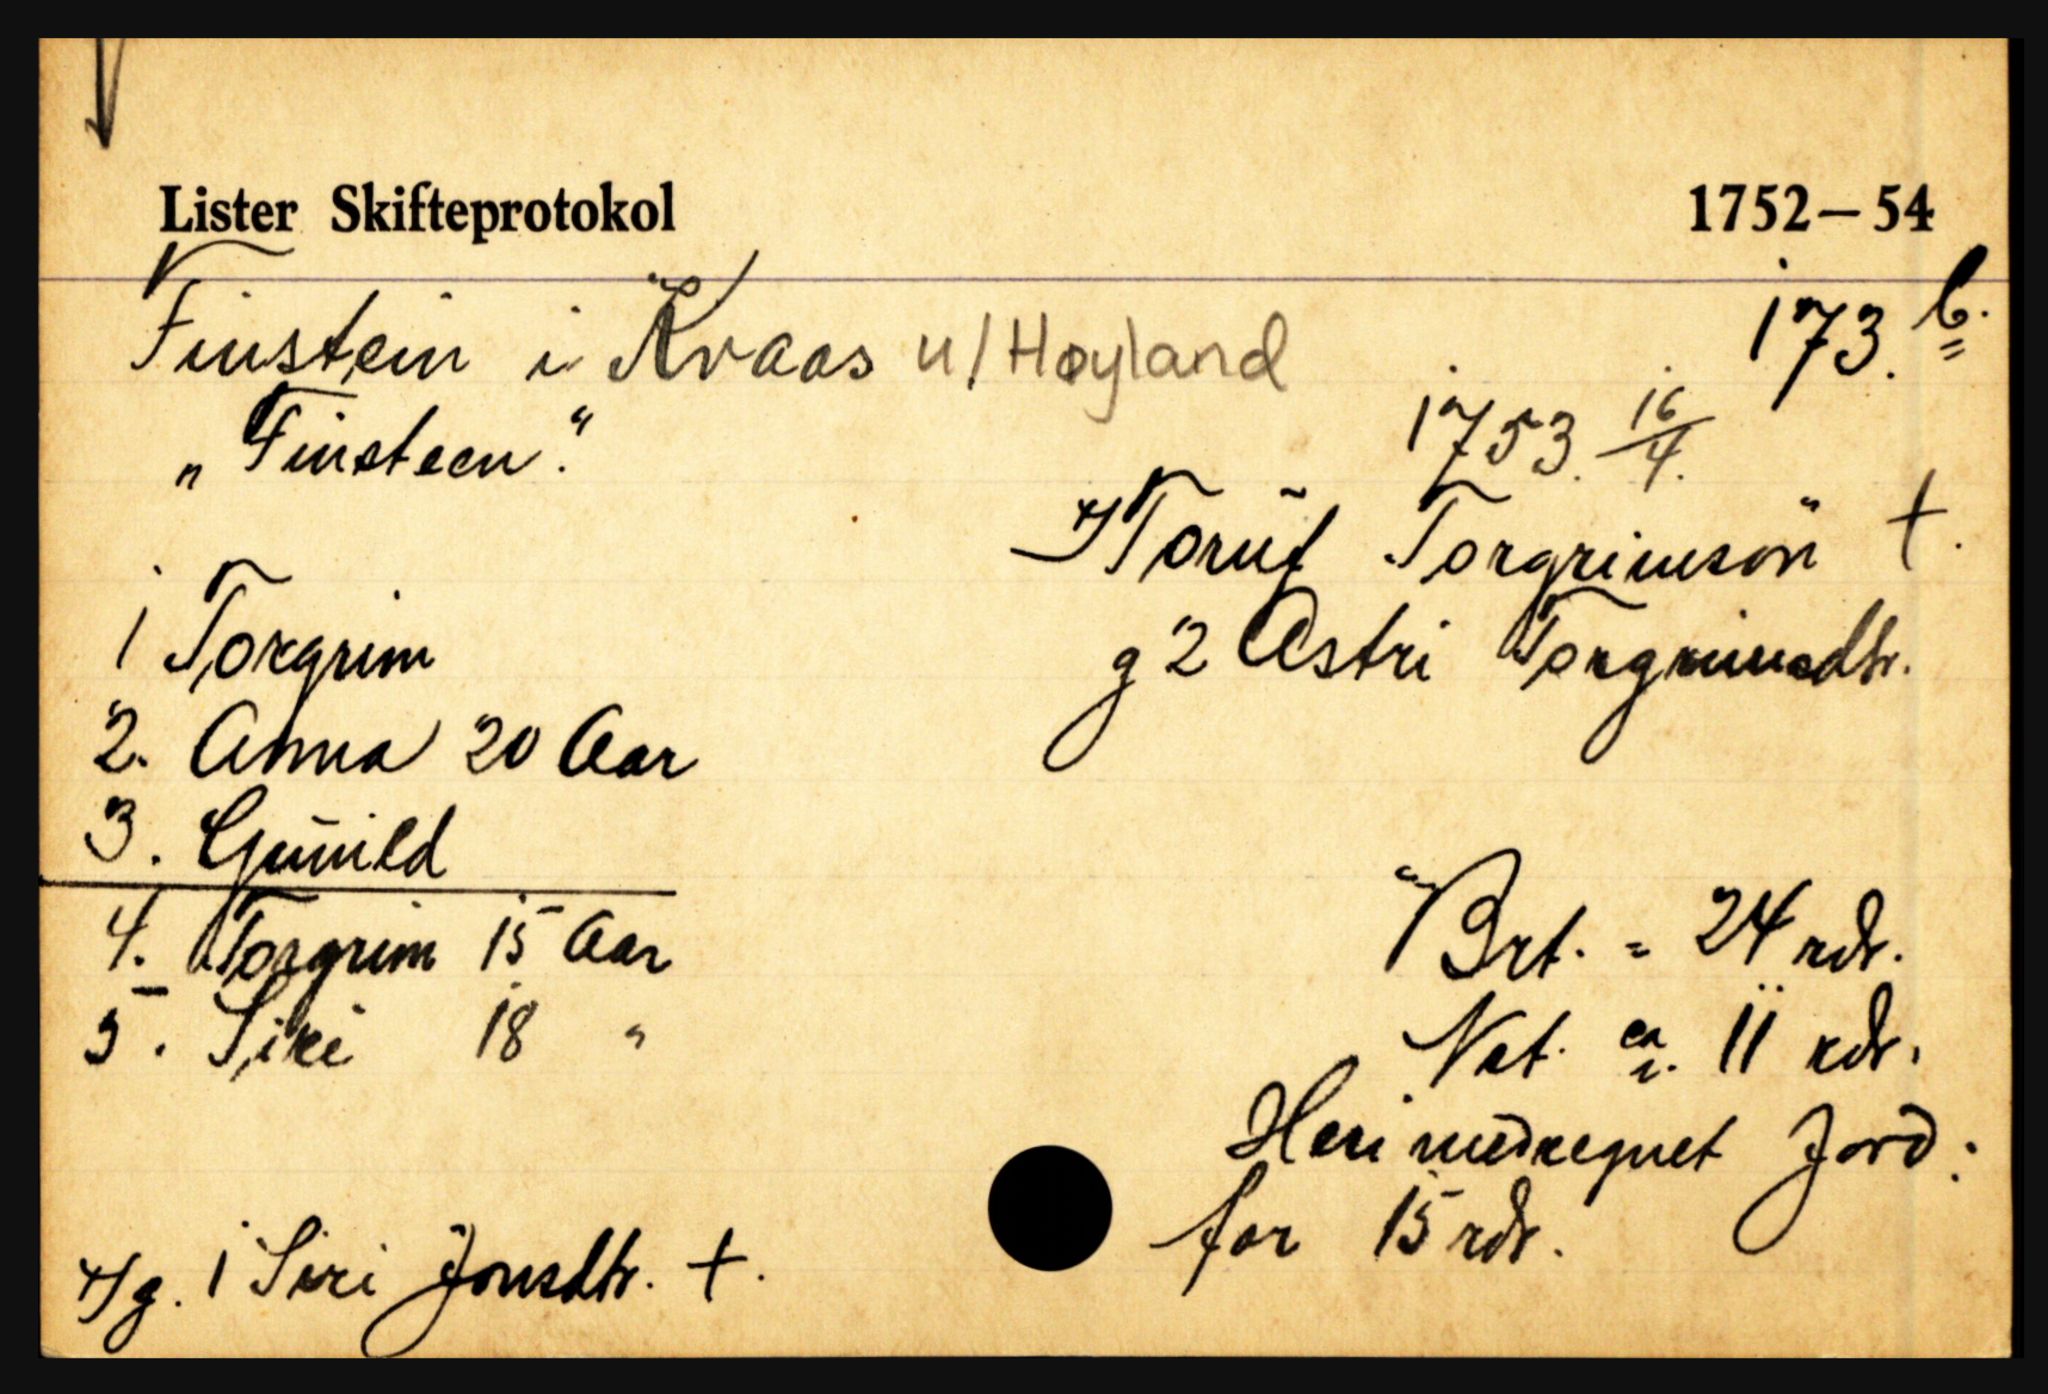 Lister Skifteprotokol 1752—54
Finstein i Kvaas u/Høyland 173.b.
„Finsteen“ 1753 16/4.
Toruf Torgrimson †.
g 2 Astri Torgrimsdtr.
1 Torgrim
2. Anna 20 Aar
3. Gunild
4. Torgrim 15 Aar
5. Siri 18 "
Brt. = 24 rdr.
Net. ca. 11 rdr.
Heri medregnet Jord:
for 15 rdr.
g. 1 Siri Jonsdtr. †.